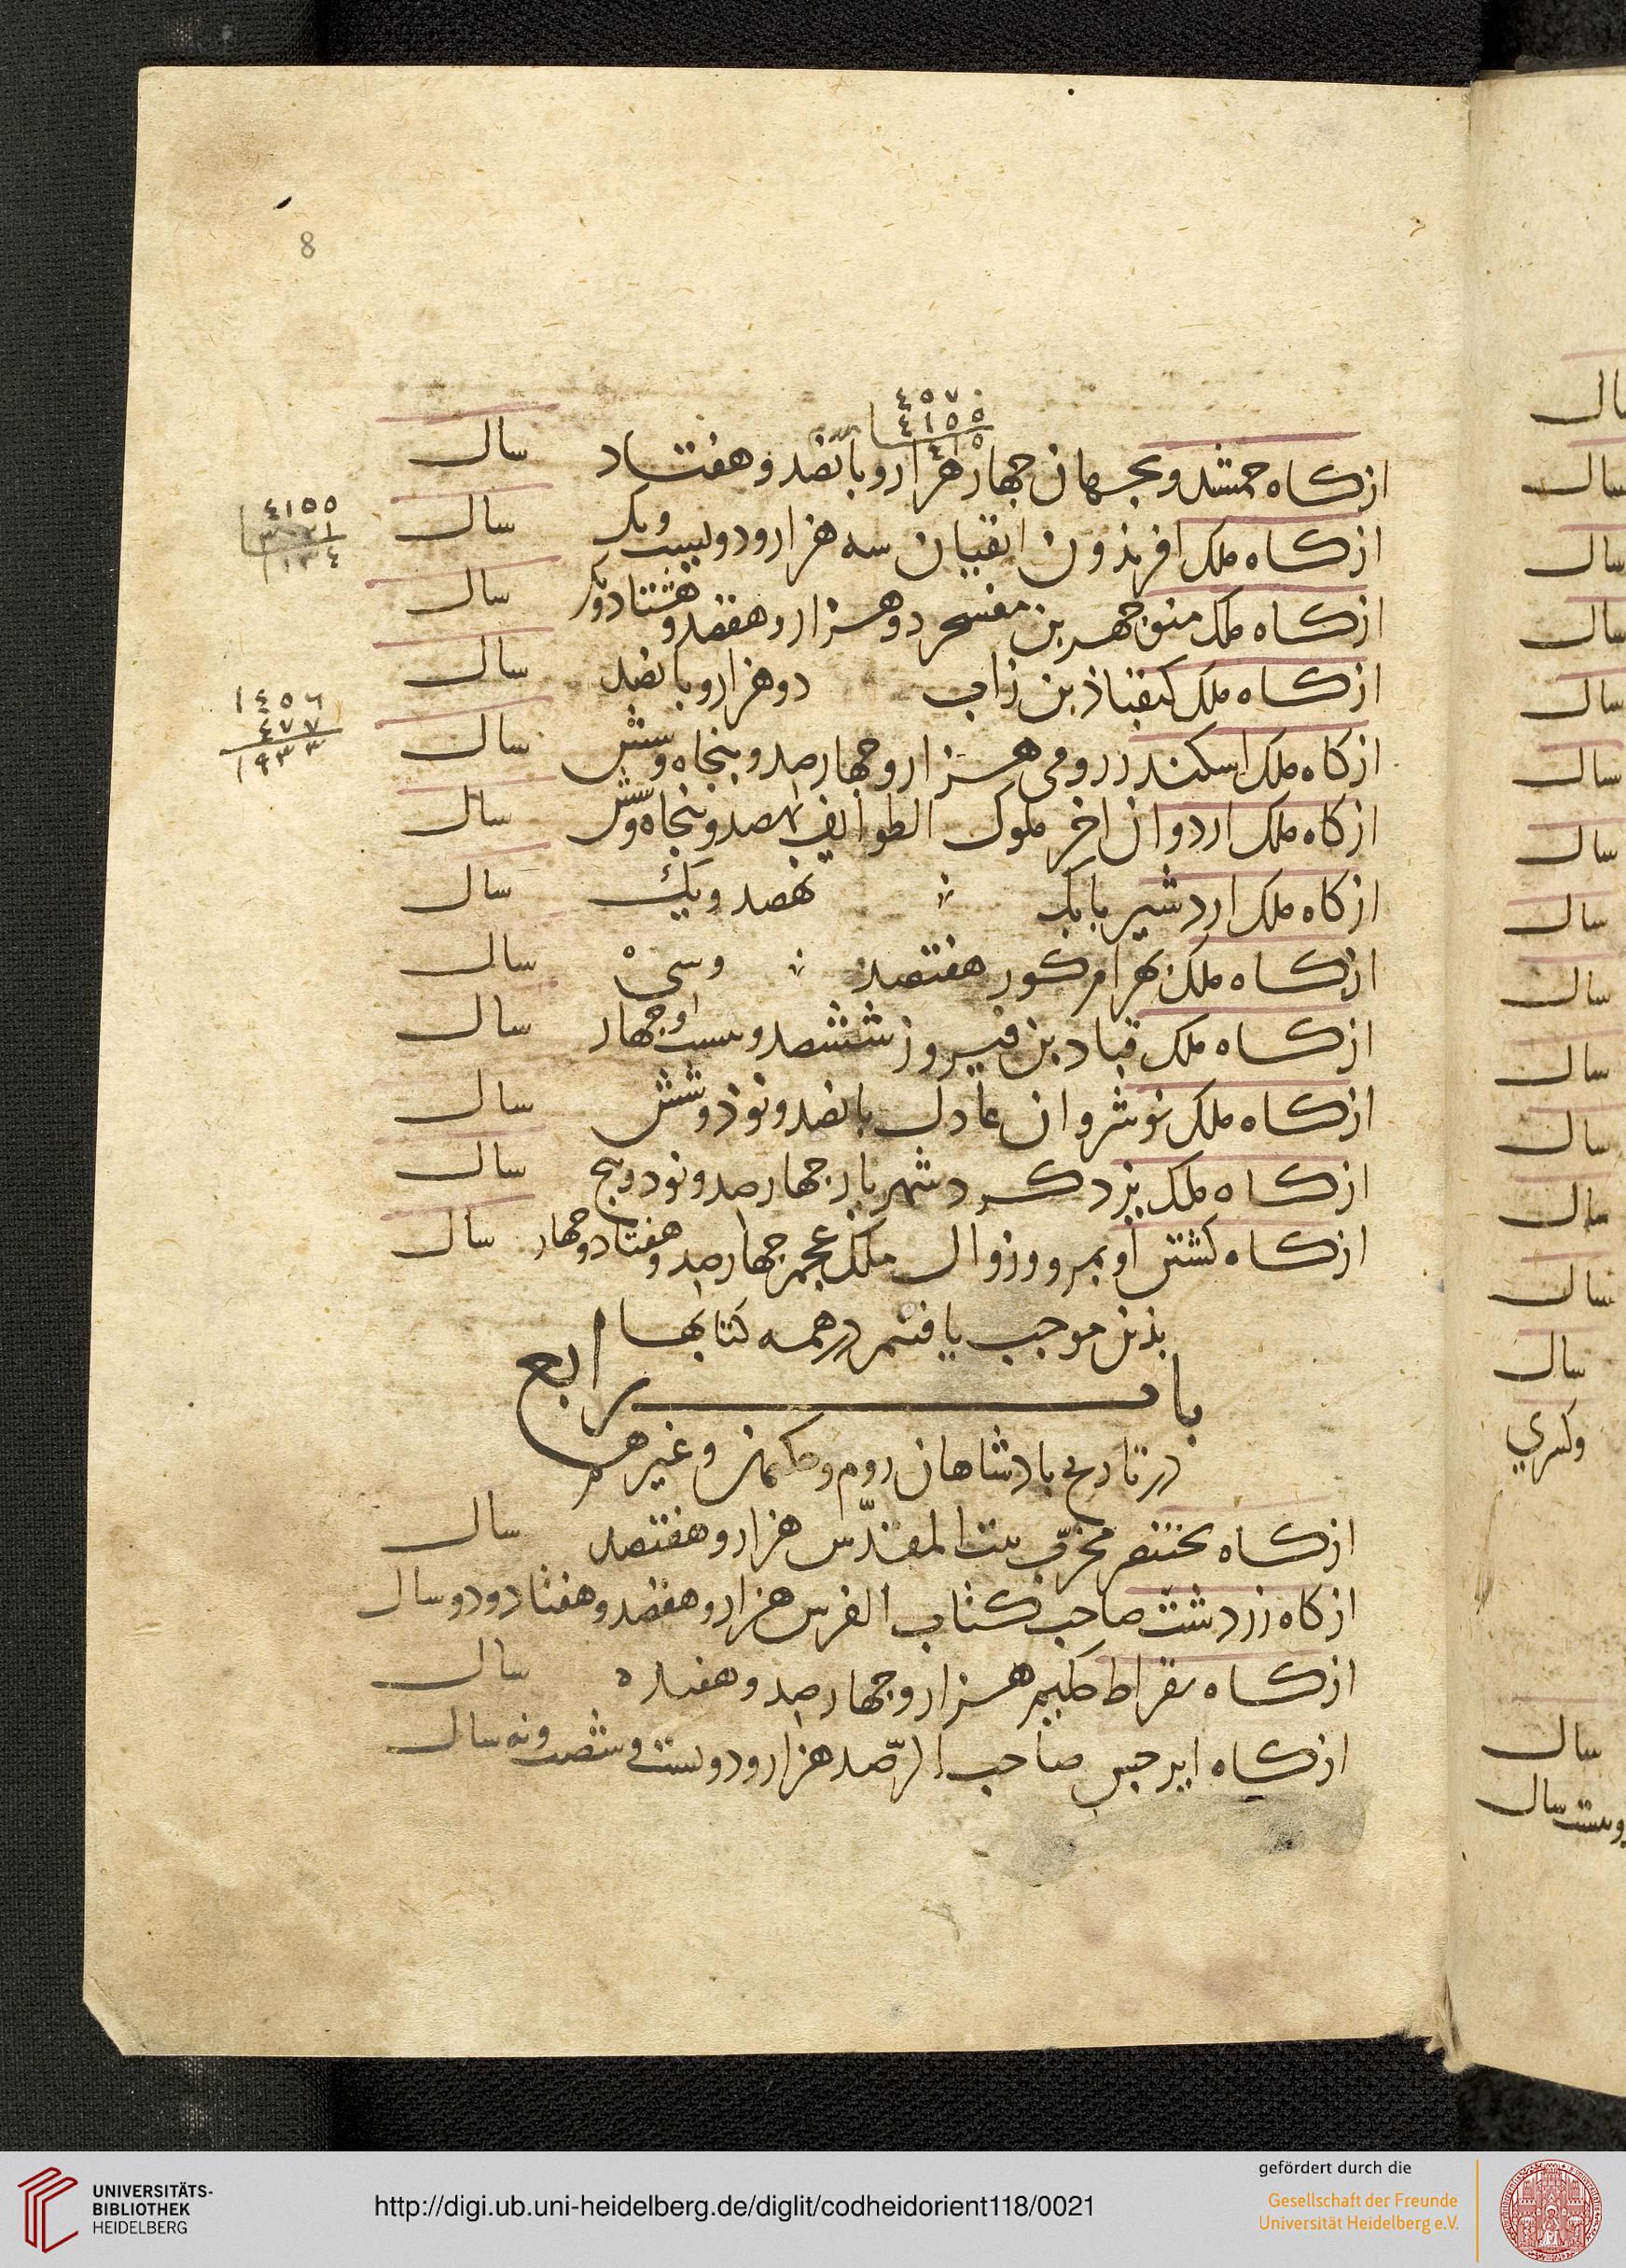 8
٤٥٧٠
٤١٥٥
٤١٥
از کاه جمشد و بجهان جهار هزار و بانصد و هفتاد سال
٤١٥٥
از کاه ملک افریذون اثفیان سه هزار و دویست و یک سال
از کاه ملک منوجهر بن دو هزار و هفصد و هشتاد و سال
از کاه ملک کیقباذ بن زاب دو هزار و بانصد سال
١٤٥٦
٤٧٧
١٩٣٣
از کاه ملک اسکندر رومی هزار و جهارصد و بنجاه و شش سال
از کاه ملک اردوان اخر ملوک الطوایف نهصد و بنجاه و شش سال
از کاه ملک اردشیر بابک نهصد و یک سال
از کاه ملک بهرام کور هفتصد و سی سال
از کاه ملک قباد بن فیروز ششصد و بیست و جهار سال
از کاه ملک نوشروان عادل بانصد و نوذ و شش سال
از کاه ملک یزدکرد شهریار جهارصد و نود و بنج سال
از کاه کشتن او بمرو و زوال ملک عجم جهارصد و هفتاد و جهار سال
بذین موجب یافتم در همه کتابها
باب رابع
در تاریخ بادشاهان روم و حکیمان و غیرهم
از کاه بختنصر مخرّب بیت المقدّس هزار و هفتصد سال
از کاه زردشت صاحب کتاب الفرس هزار و هفصد و هفتاد و دو سال
از کاه بقراط حکیم هزار و جهارصد و هفده سال
از کاه ابرجس صاحب الرّصد هزار و دویست و شصت و نه سال
سال
سال
سال
سال
سال
سال
سال
سال
سال
سال
سال
سال
سال
سال
وکسری
سال
وبیست سال
UNIVERSITÄTS-
BIBLIOTHEK
HEIDELBERG
http://digi.ub.uni-heidelberg.de/diglit/codheidorient118/0021
gefördert durch die
Gesellschaft der Freunde
Universität Heidelberg e.V.